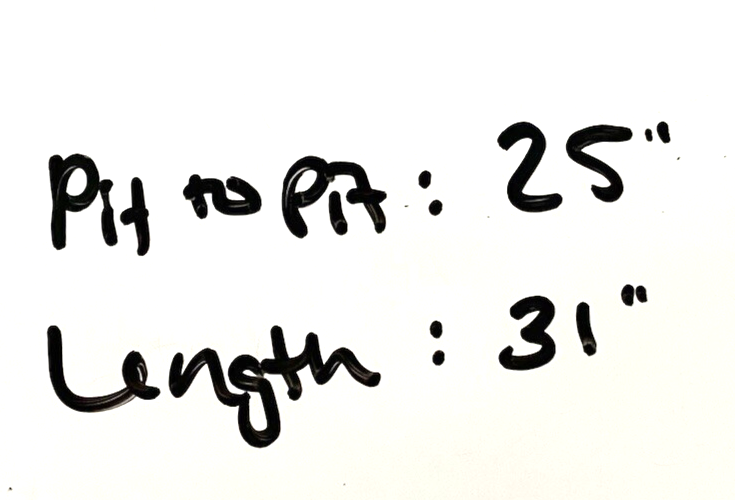 Pit to Pit: 25"
Length: 31"